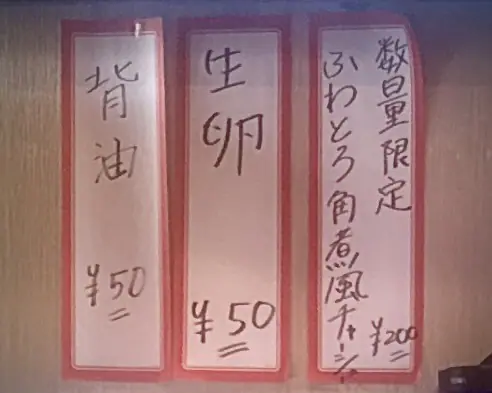 数量限定
ふわとろ角煮風チャーシュー
¥200
生卵
¥50
背油
¥50